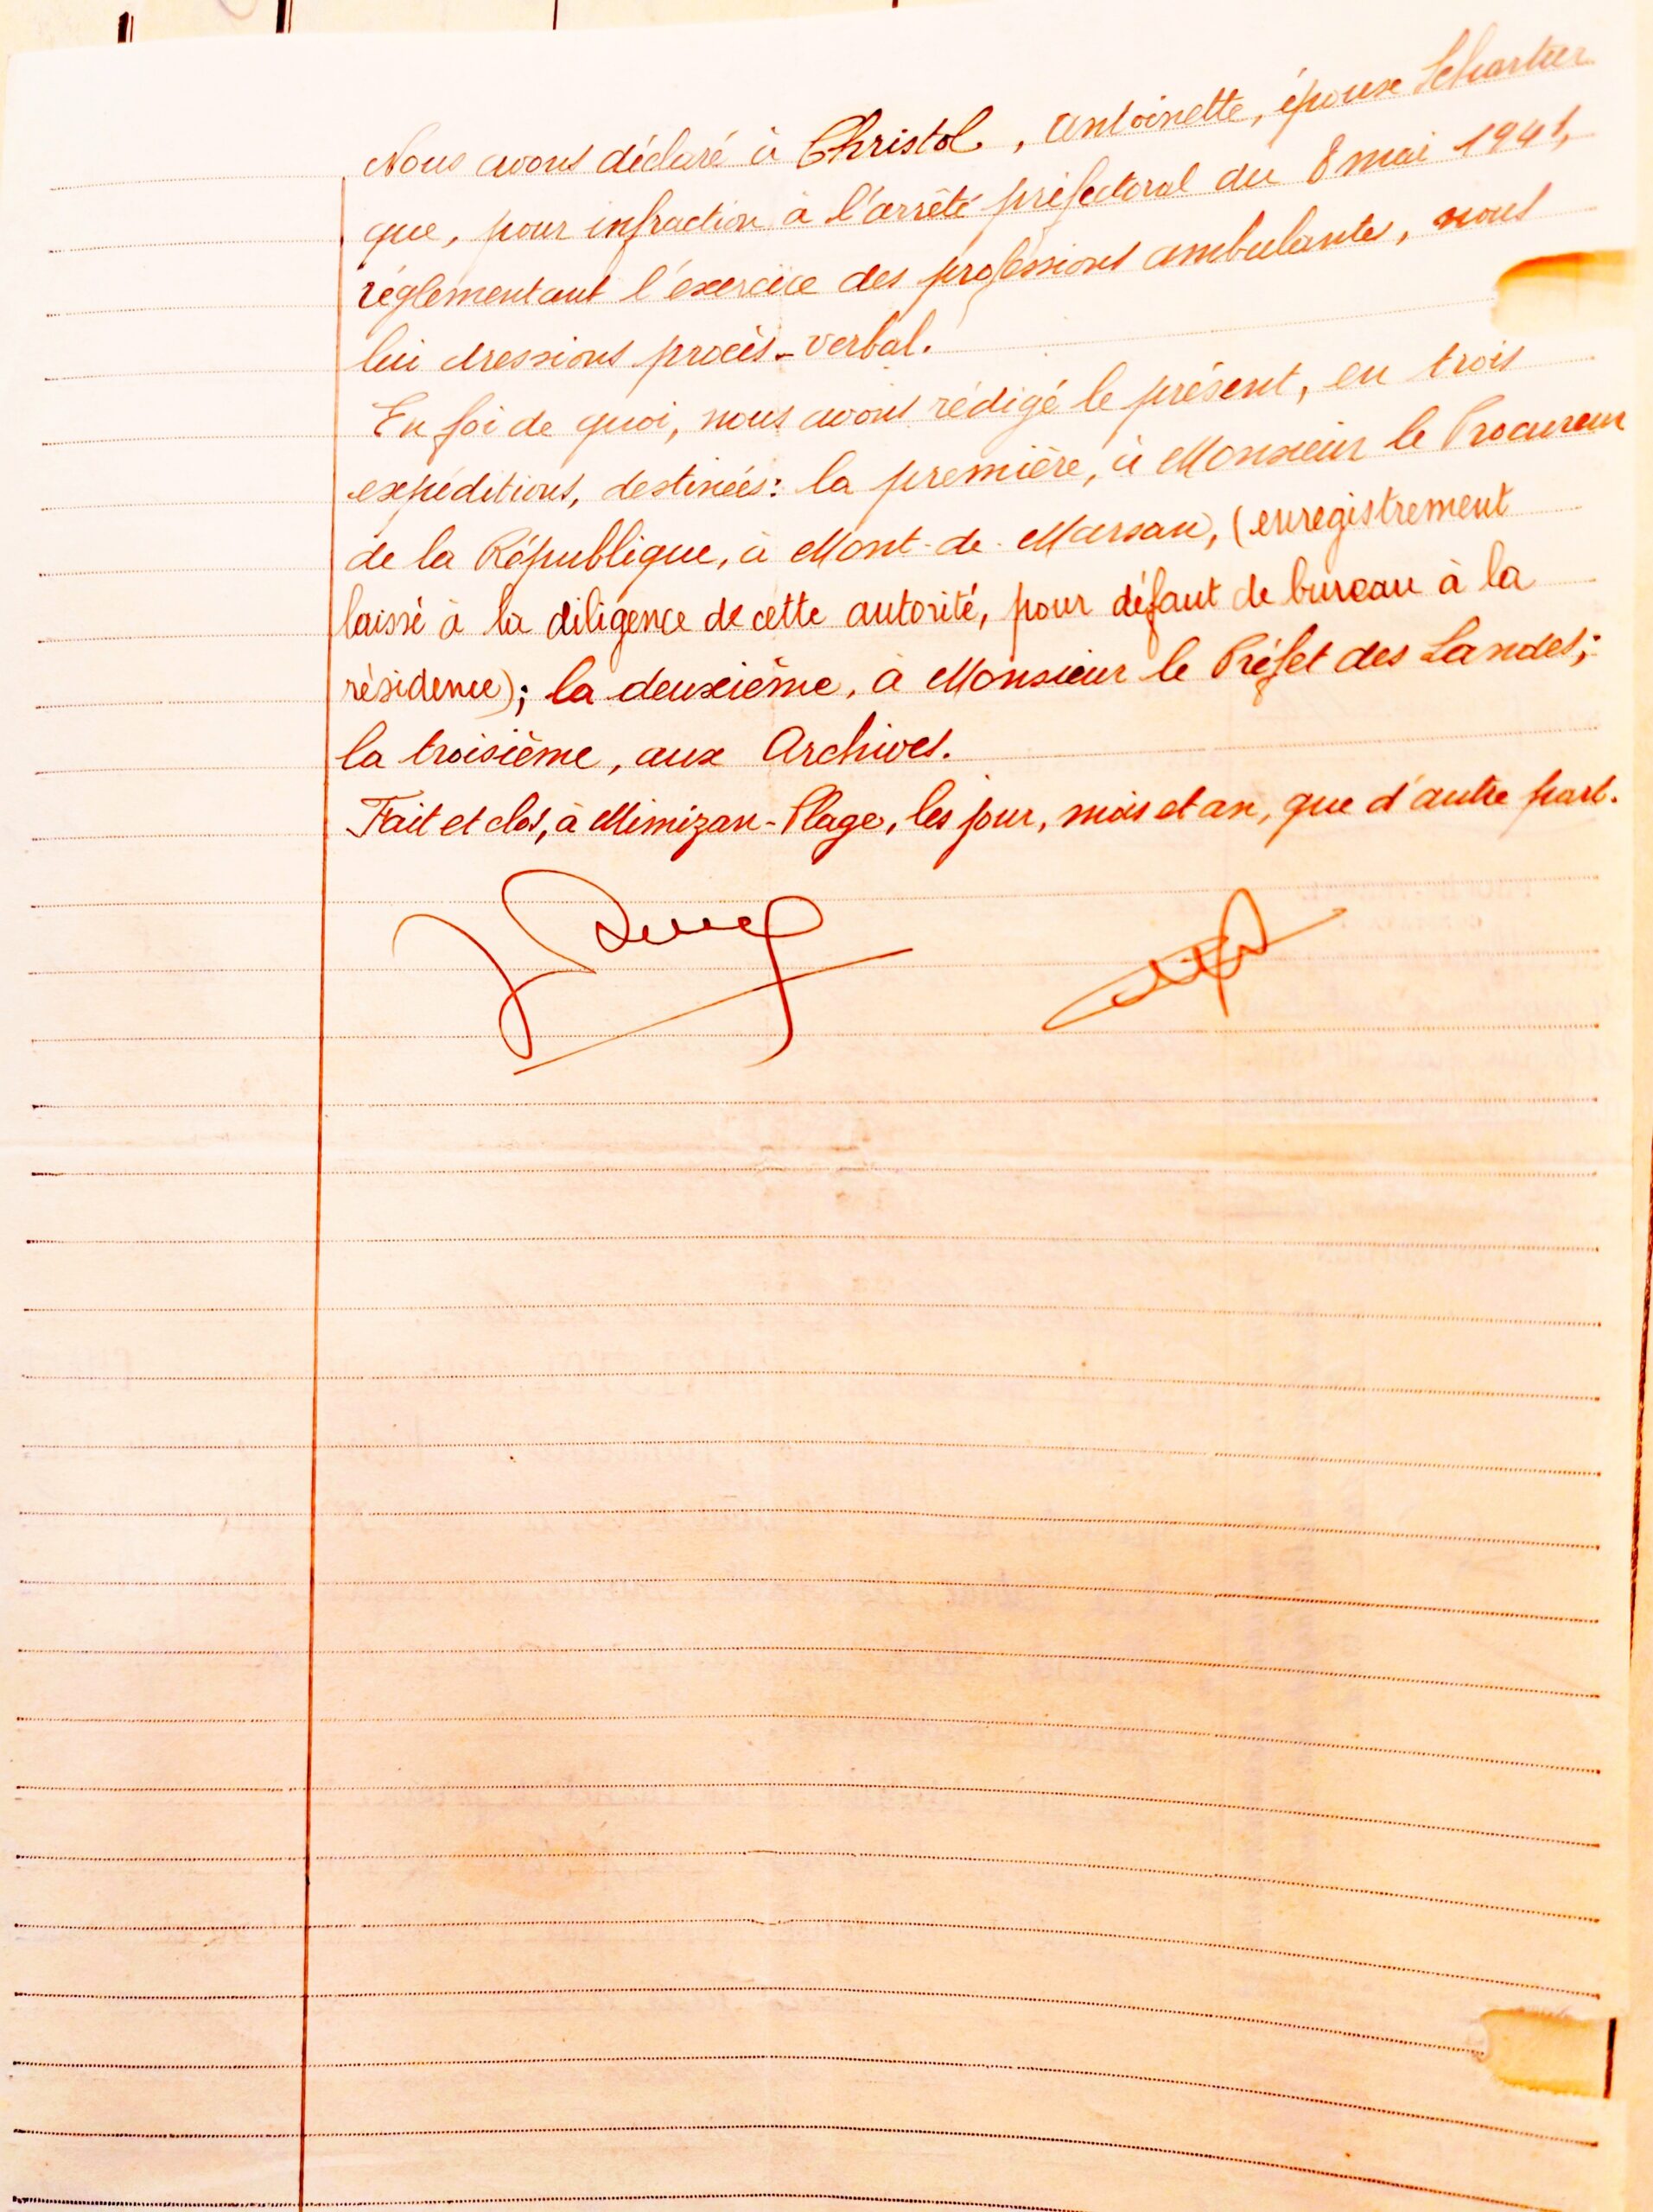 Nous avons déclaré à Christol, Antoinette, épouse Schartier
que, pour infraction à l'arrêté préfectoral du 8 mai 1941,
réglementant l'exercice des professions ambulantes, nous
lui dressions procès-verbal.
En foi de quoi, nous avons rédigé le présent, en trois
expéditions, destinées: la première, à Monsieur le Procureur
de la République, à Mont-de-Marsan, (enregistrement
laissé à la diligence de cette autorité, pour défaut de bureau à la
résidence); la deuxième, à Monsieur le Préfet des Landes;
la troisième, aux Archives.
Fait et clos, à Mimizan-Plage, les jour, mois et an, que d'autre part.